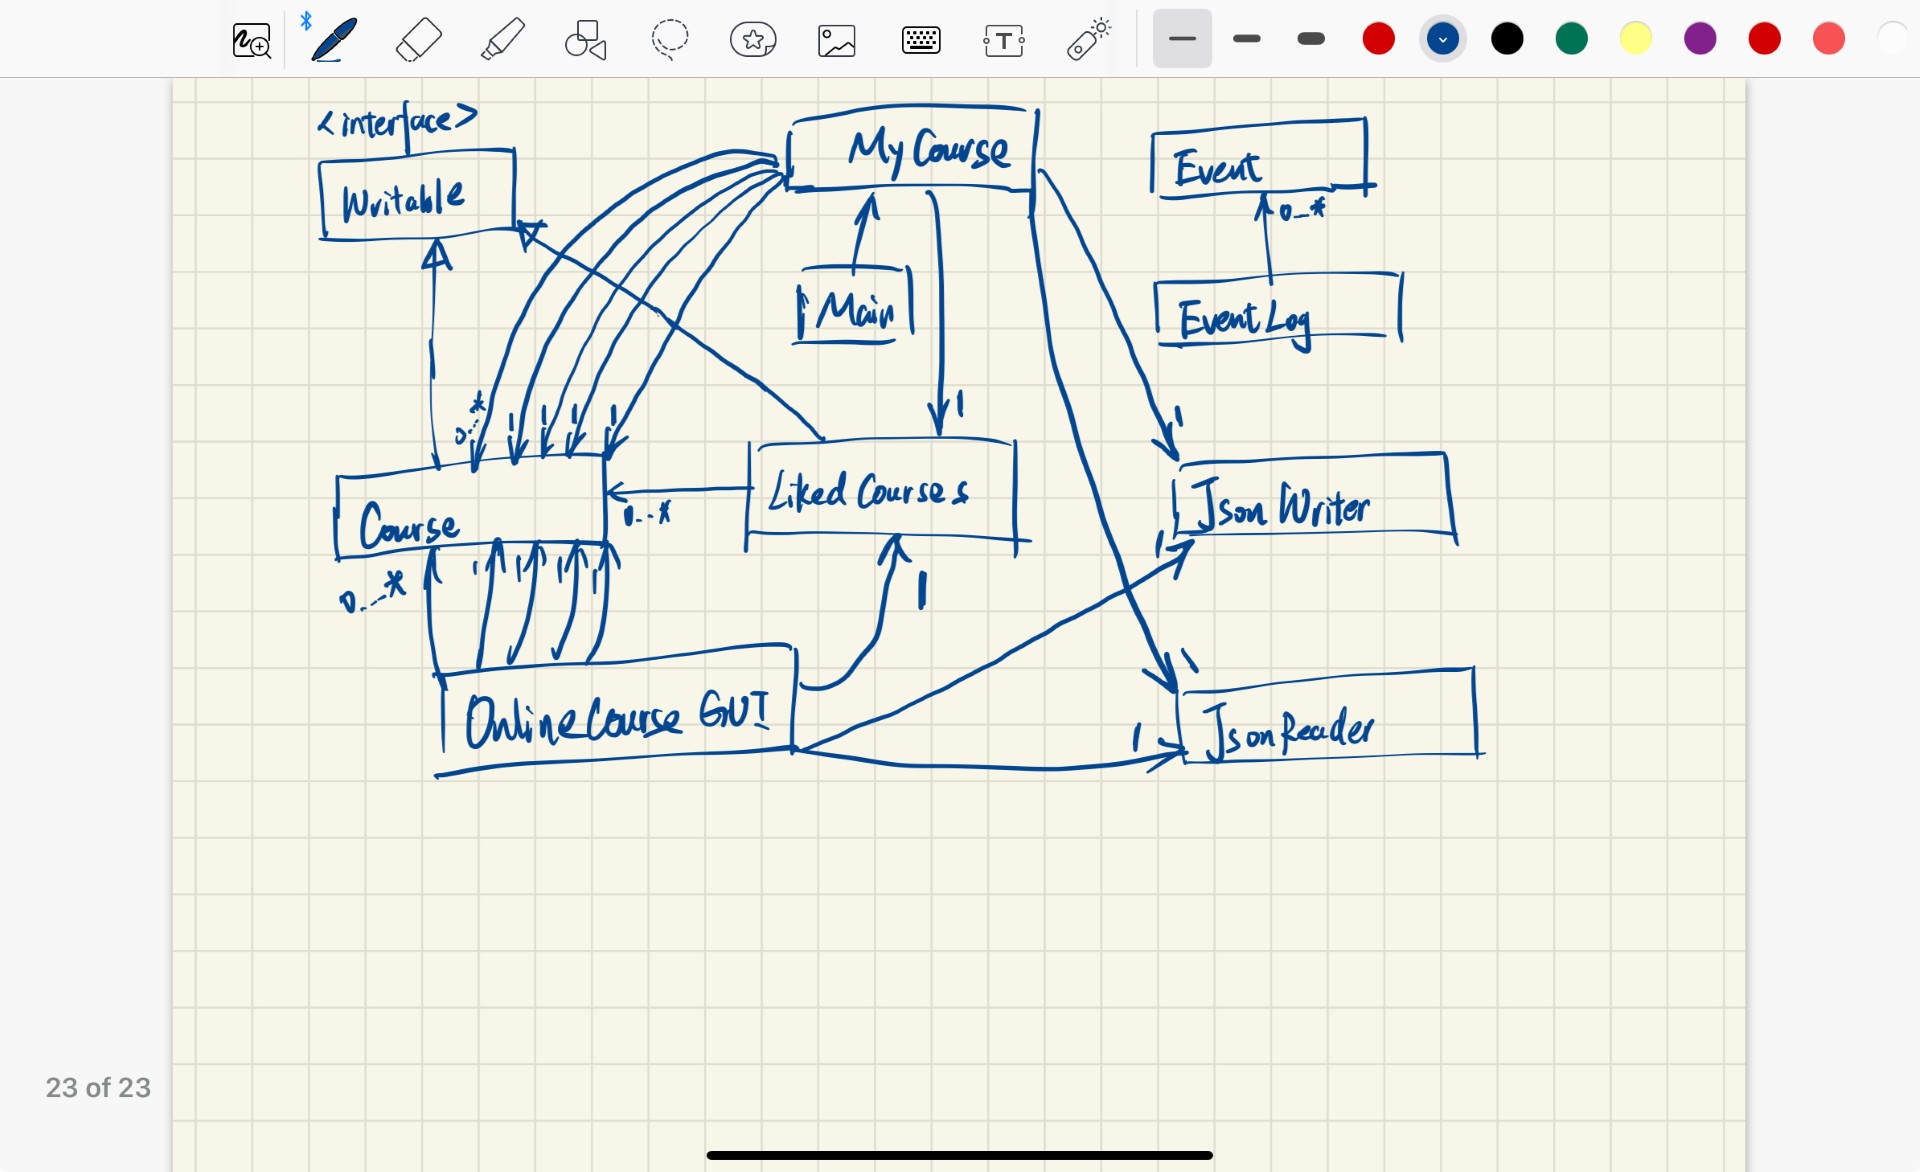 T
<interface>
Writable
My Course
Event
0..*
Main
EventLog
0..*
1
1
1
1
1
1
Course
0...*
Liked Courses
Json Writer
0...*
1
1
1
1
1
1
OnlineCourse GUI
1
1
JsonReader
23 of 23